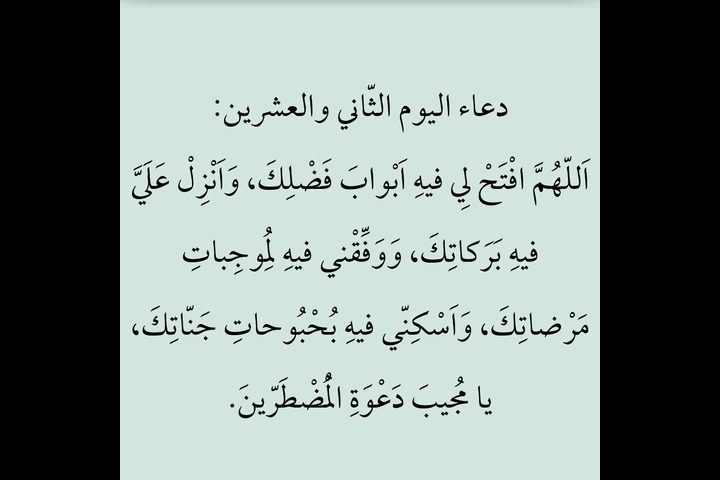 دعاء اليوم الثّاني والعشرين:
اَللّهُمَّ افْتَحْ لِي فيهِ اَبْوابَ فَضْلِكَ، وَاَنْزِلْ عَلَيَّ
فيهِ بَرَكاتِكَ، وَوَفِّقْني فيهِ لِمُوجِباتِ
مَرْضاتِكَ، وَاَسْكِنّي فيهِ بُحْبُوحاتِ جَنّاتِكَ،
يا مُجيبَ دَعْوَةِ الْمُضْطَرّينَ.